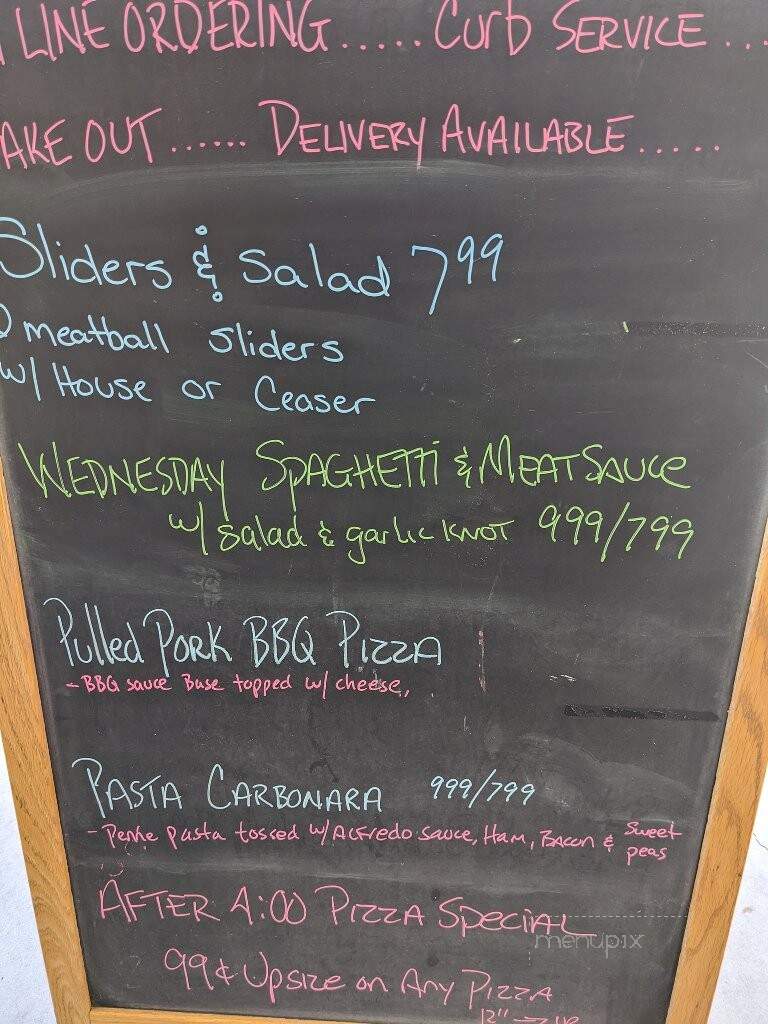 LINE ORDERING..... Curb SERVICE...
AKE OUT...... DELIVERY AVAILABLE.....
Sliders & Salad 799
meatball sliders
w/ House or Ceaser
WEDNESDAY SPAGHETTI & MEATSAUCE
w/ salad & garlic KNOT 999/799
Pulled PORK BBQ PIZZA
- BBQ sauce Base topped w/ cheese,
PASTA CARBONARA 999/799
- Penne pasta tossed w/ ALFredo sauce, Ham, Bacon & Sweet
peas
AFTER 4:00 PIZZA SPECIAL
menupix
99¢ Upsize on Any PIZZA
12" →